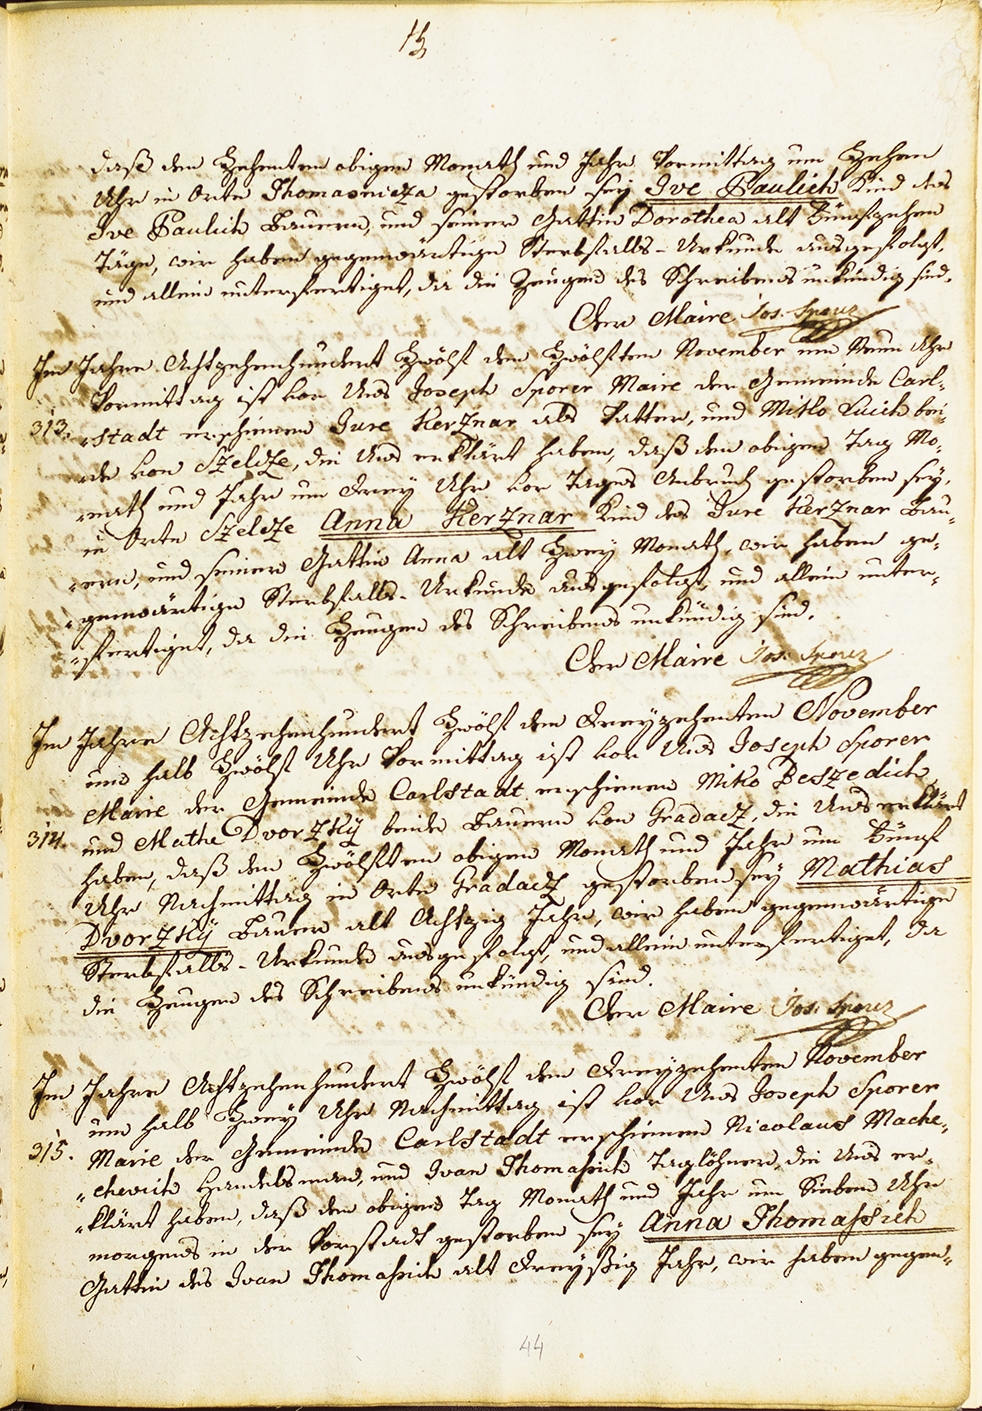 daß den Zehenten obigen Monath und Jahr Vormittag um Zehen
Uhr in Orte Thomasnicza gestorben sey Ive Paulich Kind des
Ive Paulich Bauern, und seiner Gattin Dorothea alt Fünfzehen
Täge, wir haben gegenwärtige Sterbfalls-Urkunde ausgefolgt,
und allein unterfertiget, da die Zeugen des Schreibens unkündig sind.
Der Maire Jos. Sporer
Im Jahre Achtzehenhundert Zwölf den Zwölften November um Neun Uhr
Vormittag ist vor Uns Joseph Sporer Maire der Gemeinde Carl-
313. stadt erschienen Jure Kerznar als Vatter, und Mitko Lucich bei-
de von Szelcze, die Uns erklärt haben, daß den obigen Tag Mo-
nath und Jahr um Drey Uhr vor Tages Anbruch gestorben sey,
in Orte Szelcze Anna Kerznar Kind des Jure Kerznar Bau-
ern, und seiner Gattin Anna alt Zwey Monath, wir haben ge-
genwärtige Sterbfalls-Urkunde ausgefolgt, und allein unter-
fertiget, da die Zeugen des Schreibens unkündig sind.
Der Maire Jos. Sporer
Im Jahre Achtzehenhundert Zwölf den Dreyzehenten November
um halb Zwölf Uhr Vormittag ist vor Uns Joseph Sporer
Maire der Gemeinde Carlstadt erschienen Miko Beszedich,
314. und Mathe Dvorzky beide Bauern von Gradacz, die Uns erklärt
haben, daß den Zwölften obigen Monath und Jahr um Fünf
Uhr Nachmittag in Orte Gradacz gestorben sey Mathias
Dvorzky Bauer alt Achtzig Jahr, wir haben gegenwärtige
Sterbfalls-Urkunde ausgefolgt, und allein unterfertiget, da
die Zeugen des Schreibens unkündig sind.
Der Maire Jos. Sporer
Im Jahre Achtzehenhundert Zwölf den Dreyzehenten November
um halb Zwey Uhr Nachmittag ist vor Uns Joseph Sporer
315. Maire der Gemeinde Carlstadt erschienen Nicolaus Mache-
chevich Handelsman, und Ivan Thomassich Taglöhner, die Uns er-
klärt haben, daß den obigen Tag Monath und Jahr um Sieben Uhr
morgends in der Vorstadt gestorben sey Anna Thomassich
Gattin des Ivan Thomassich alt Dreyßig Jahr, wir haben gegen-
44